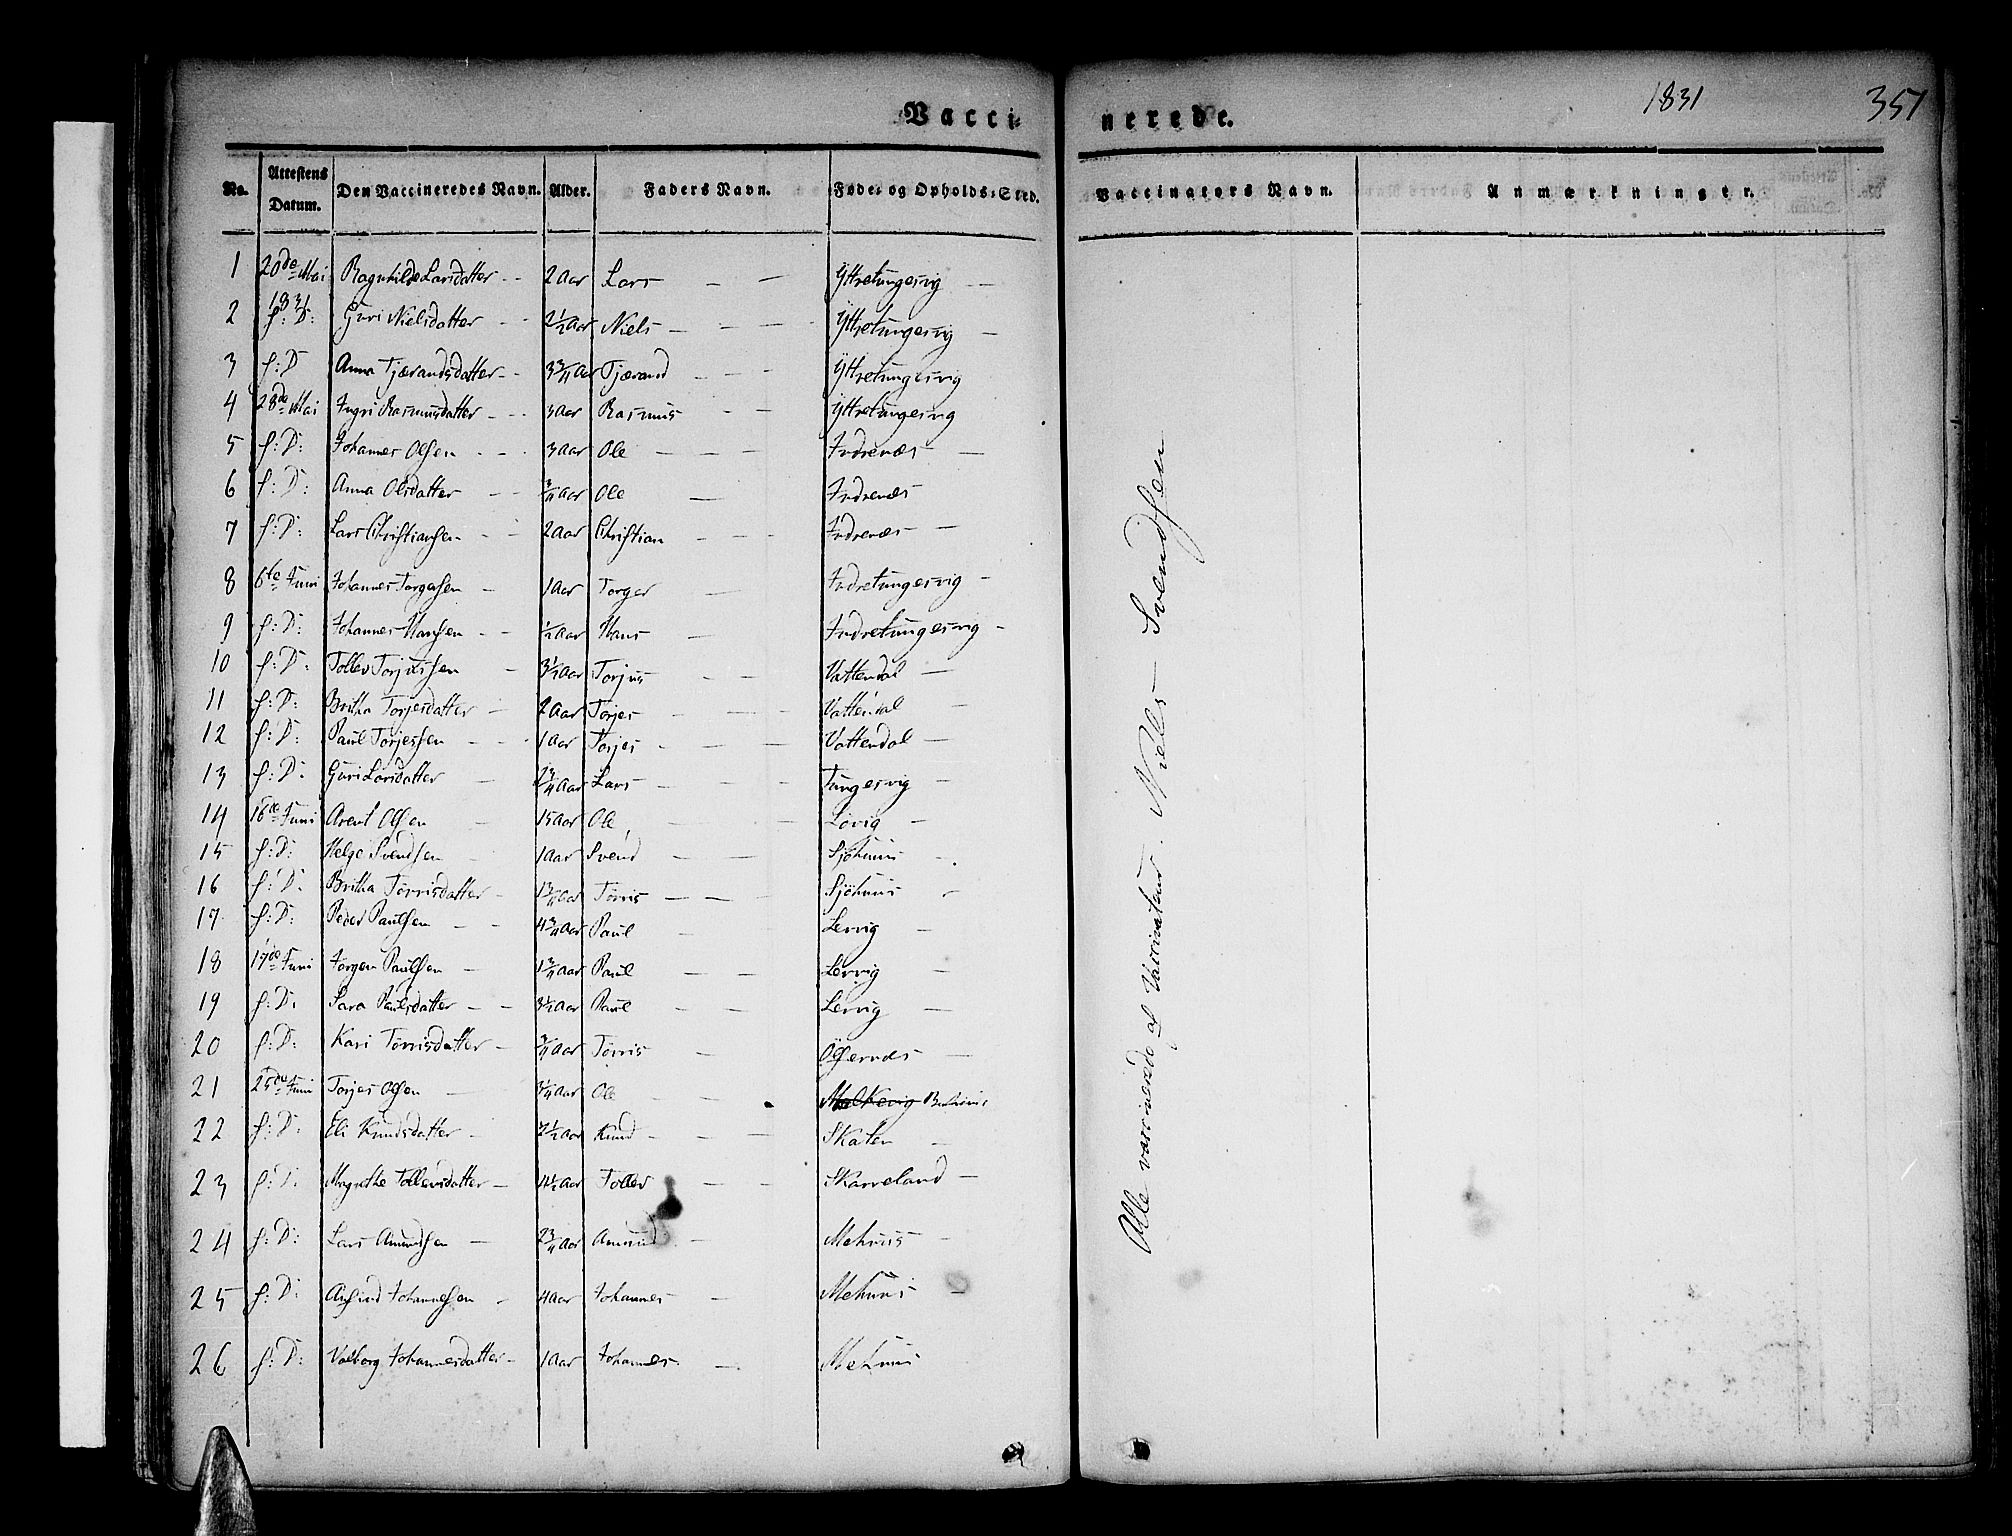 1831 351
Vaccinerede.
No. Attestens Datum. Den Vaccineredes Navn. Alder. Faders Navn. Føde- og Opholds-Sted. Vaccinateurs Navn. Anmærkninger.
1 20de Mai 1831 Ragnhilde Larsdatter 2 Aar Lars Yttretungesvig
2 f: D: Guri Nielsdatter 2½ Aar Niels Yttretungesvig
3 f: D Anna Tjærandsdatter 3 3/4 Aar Tjærand Yttretungesvig
4 28de Mai Ingri Rasmusdatter 3 Aar Rasmus Yttretungesvig
5 f: D: Johannes Olsen 3 Aar Ole Indrenæs
6 f: D: Anna Olsdatter 3/4 Aar Ole Indrenæs
7 f: D: Lars Christiansen 2 Aar Christian Indrenæs
8 6te Juni Johannes Torgersen 1 Aar Torger Indretungesvig
9 f: D: Johannes Hansen ½ Aar Hans Indretungesvig
10 f: D: Tollev Torjussen 3½ Aar Torjus Vattendal
11 f: D: Britha Torjesdatter 2 Aar Torjes Vattendal
12 f: D: Paul Torjessen 1 Aar Torjes Vattendal
13 f: D. Guri Larsdatter 2 3/4 Aar Lars Tungesvig
14 16de Juni Arent Olsen 15 Aar Ole Løvig
15 f: D: Helge Svendsen 1 Aar Svend Sjöhuus
16 f: D. Britha Tørrisdatter 1 3/4 Aar Tørris Sjöhuus
17 f: D: Peder Paulsen 4 3/4 Aar Paul Lervig
18 17de Juni Jorgen Paulsen 1 3/4 Aar Paul Lervig
19 f: D. Sara Paulsdatter 3½ Aar Paul Lervig
20 f: D: Kari Tørrisdatter 3/4 Aar Tørris
21 25de Juni Torjes Olsen 3/4 Aar Ole Malkevig
22 f: D: Eli Knudsdatter 2½ Aar Knud Skaten
23 f: D: Magrethe Tollevsdatter 4½ Aar Tollev Skarreland
24 f: D: Lars Amundsen 2 3/4 Aar Amund Mehuus
25 f: D: Johannesen 4 Aar Johannes Mehuus
26 f: D: Valborg Johannesdatter 1 Aar Johannes Mehuus
Alle vaccinerede af Vaccinateur. Niels Svendsen